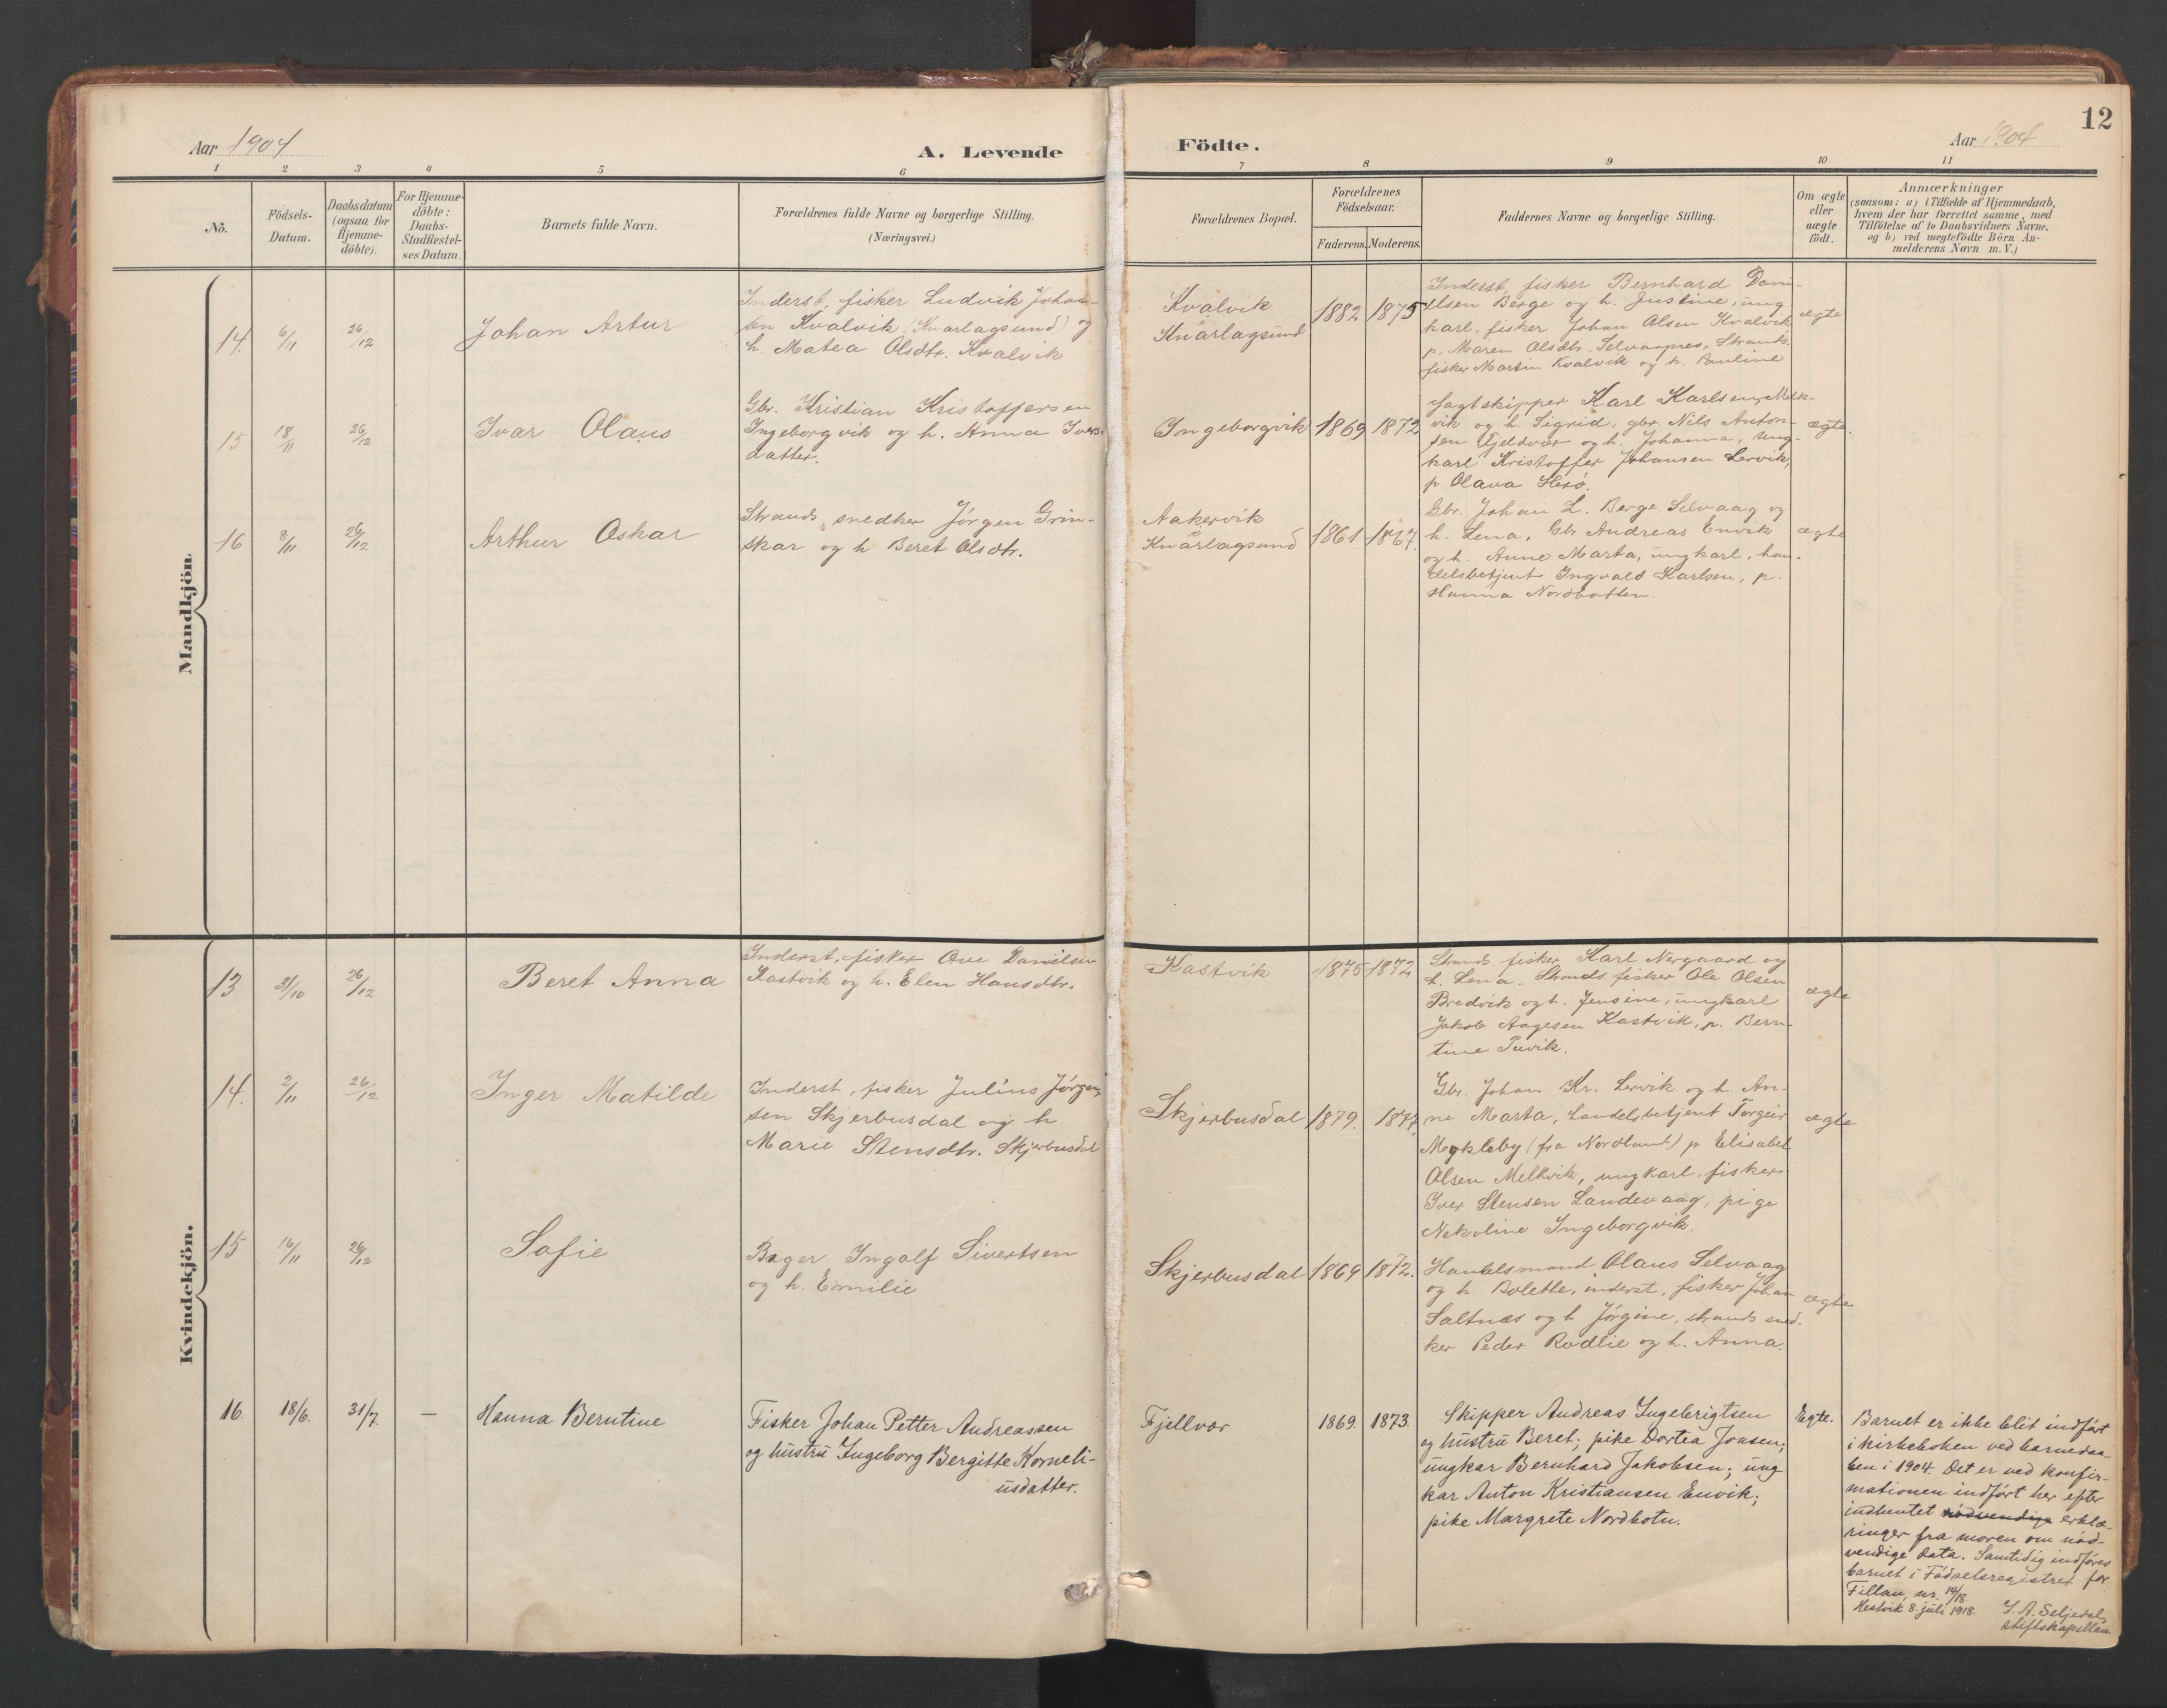 12
Aar 1904
A. Levende
Födte.
Aar 1904
1 2 3 4 5 6 7 8 9 10 11
No.
Födsels-
Datum.
Daabsdatum
(ogsaa for
Hjemme-
döbte).
For Hjemme-
döbte:
Daabs-
Stadfæstel-
ses Datum.
Barnets fulde Navn.
Forældrenes fulde Navne og borgerlige Stilling.
(Næringsvei.)
Forældrenes Bopæl.
Forældrenes
Födselsaar.
Faderens. Moderens.
Faddernes Navne og borgerlige Stilling.
Om ægte
eller
uægte
födt.
Anmærkninger
(saasom: a) i Tilfælde af Hjemmedaab,
hvem der har forrettet samme, med
Tilföielse af to Daabsvidners Navne,
og b) ved uægtefödte Börn An-
melderens Navn m. V.)
Mandkjön.
14. 6/11 26/12
Johan Artur
Inderst, fisker Ludvik Johan-
sen Kvalvik (Knarlagsund) og
h. Matea Olsdtr. Kvalvik
Kvalvik
Knarlagsund
1882 1875
Inderst, fisker Bernhard Dani-
elsen Berge og h. Justine, ung-
karl, fisker Johan Olsen Kvalvik,
p. Maren Olsdtr. Selvaagnes, Strands.
fisker Martin Kvalvik og h. Pauline
ægte
15 18/11 26/12
Ivar Olaus
Gbr. Kristian Kristoffersen
Ingeborgvik og h. Anna Ivers-
datter.
Ingeborgvik
1869 1872
Jagtskipper Karl Karlsen Melk-
vik og h. Sigrid, gbr. Nils Anton-
sen Fjeldvær og h. Johanna, ung-
karl Kristoffer Johansen Lervik,
p Olava
ægte.
16 8/11 26/12
Arthur Oskar
Strands, snedker Jörgen Grin-
skar og h Beret Olsdtr.
Aakervik
Knarlagsund
1861 1867.
Gbr. Johan L. Berge Selvaag og
h. Lena, Gbr Andreas Envik
og h. Anne Marta, ungkarl, han-
delsbetjent Ingvald Karlsen, p.
Hanna Nordbotten.
ægte
Kvindekjön.
13 31/10 26/12
Beret Anna
Inderst, fisker Ove Danielsen
Kastvik og h. Elen Hansdtr.
Kastvik
1875 1872
Strands fisker Karl Norgaard og
h. Lena. Strands fisker Ole Olsen
Bredvik og h. Jensine, ungkarl
Jakob Aagesen Kastvik, p. Bern-
tine
ægte
14. 2/11 26/12
Inger Matilde
Inderst, fisker Julius Jörgen-
sen Skjerbusdal og h
Marie Stensdtr. Skjerbusdal
Skjerbusdal
1879. 1877.
Gbr. Johan Kr. Lervik og h. An-
ne Marta, handelsbetjent Torgeir
Mykleby (fra Nordland) p Elisabet
Olsen Melkvik, ungkarl, fisker
Iver Stensen Landevaag, pige
Nekoline Ingeborgvik.
ægte
15 16/11 26/12
Sofie
Bager Ingolf Sivertsen
og h. Emilie
Skjerbusdal
1869 1872.
Handelsmand Olaus Selvaag
og h. Bolette, inderst, fisker Johan
Saltnæs og h Jörgine, strands sned-
ker Peder Rodlie og h. Anna.
ægte
16. 18/6. 31/7. —
Hanna Berntine
Fisker Johan Petter Andreassen
og hustru Ingeborg Bergitte Korneli-
usdatter.
Fjellvær
1869. 1873.
Skipper Andreas Ingebrigtsen
og hustru Beret; pike Dortea Jonsen;
ungkar Bernhard Jakobsen; ung
kar Anton Kristiansen Envik;
pike Margrete Nordbotn.
Egte.
Barnet er ikke blit indført
i kirkeboken ved barnedaa-
ben i 1904. Det er ved konfir-
mationen indført her efter
indhentet nødvendige erklæ-
ringer fra moren om nød-
vendige data. Samtidig indføres
barnet i Fødselsregistret for
Fillan, nr. 14/18.
Hestvik 8. juli 1918.
stiftskapellan